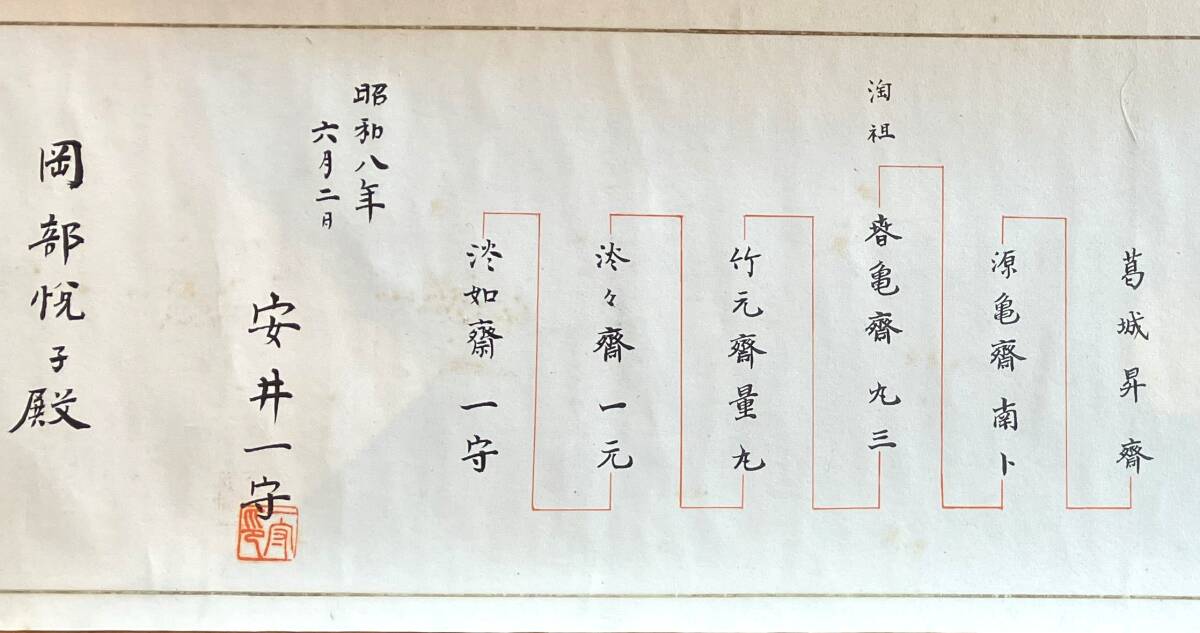 葛城昇齊
源亀齊南卜
淘祖
春亀齊丸三
竹元齊量丸
淡々齊一元
淡如齋一守
昭和八年
六月二日
安井一守
一守印
岡部悦子殿